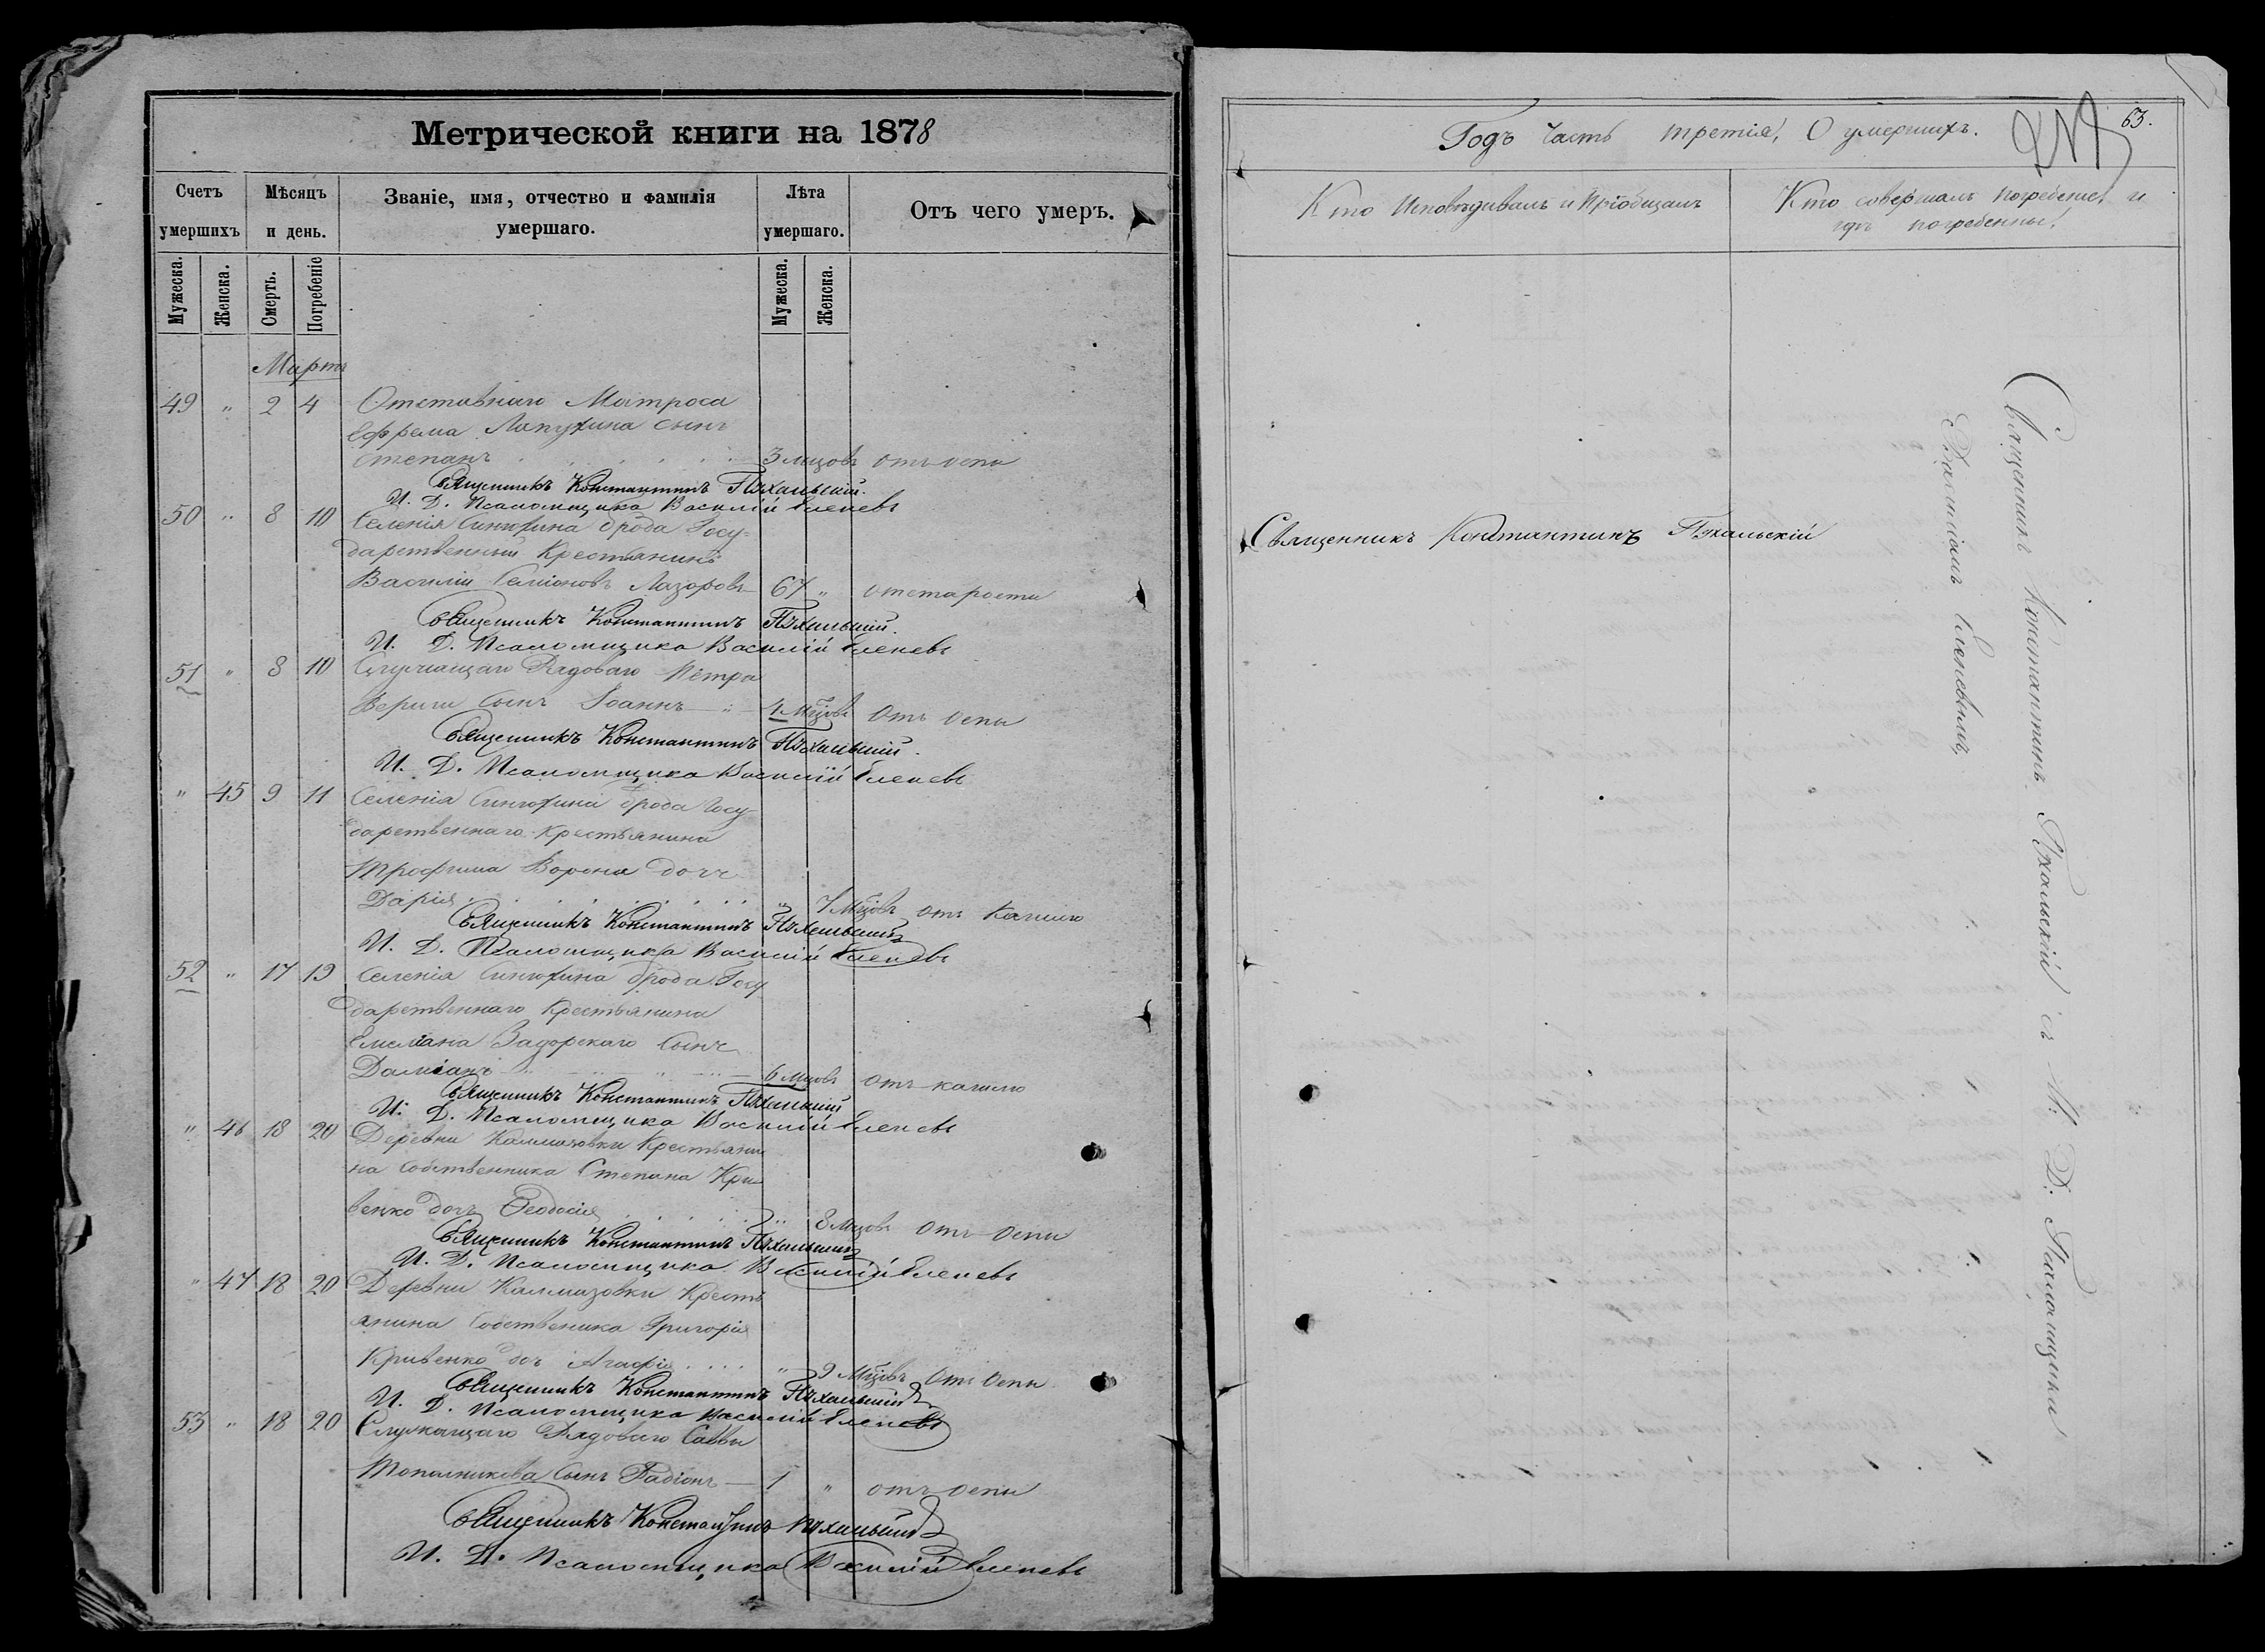 Метрической книги на 1878
Счетъ умершихъ
Мѣсяцъ и день.
Званіе, имя, отчество и фамилія умершаго.
Лѣта умершаго.
Отъ чего умеръ.
Мужеска.
Женска.
Смерть.
Погребеніе
Мужеска.
Женска.
Мартъ
49 " 2 4 Отставнаго Матроса
Ефрема Лапухина сынъ
Степанъ 3 мцовъ отъ оспи
Священникъ Константинъ Пѣхальскій.
И. Д. Псаломщика Василій Еленевъ
50 " 8 10 Селенія Синюхина Брода Госу-
дарственный Крестьянинъ
Василій Семіоновъ Лазоровъ 67 " отстарости
Священникъ Константинъ Пѣхальскій.
И. Д. Псаломщика Василій Еленевъ
51 " 8 10 Служащаго Рядоваго Петра
Вериги Сынъ Іоаннъ " 4 Мцовъ Отъ Оспи
Священникъ Константинъ Пѣхальскій.
И. Д. Псаломщика Василій Еленевъ
" 45 9 11 Селенія Синюхина Брода Госу-
дарственнаго Крестьянина
Трофима Ворона дочь
Дарія " 7 Мцовъ отъ Кашлю
Священникъ Константинъ Пѣхальскій
И. Д. Псаломщика Василій Еленевъ
52 " 17 19 Селенія Синюхина Брода Госу
дарственнаго Крестьянина
Емеліана Задорскаго Сынъ
Даміанъ 6 Мцовъ отъ кашлю
Священникъ Константинъ Пѣхальскій
И: Д. Псаломщика Василій Еленевъ
" 46 18 20 Деревни Калмазовки Крестьяни
на Собственника Степана Кри
венко дочь Ѳеодосія " 8 мцовъ Отъ Оспи
Священникъ Константинъ Пѣхальскій
И. Д. Псаломщика Василій Еленевъ
" 47 18 20 Деревни Калмазовки Кресть
янина Собственика Григорія
Кривенко доч Агафія " 9 Мцовъ Отъ Оспи
Священникъ Константинъ Пѣхальскій
И. Д. Псаломщика Василій Еленевъ
53 " 18 20 Служащаго Рядоваго Саввы
Сынъ Радіонъ 1 " отъ оспи
Священникъ Константинъ Пѣхальскій
И. Д. Псаломщика Василій Еленевъ
63.
Годъ Часть третія, О умершихъ.
Кто Исповѣдивалъ и Пріобщалъ
Кто совершалъ погребеніе и
гдѣ погребенны.
Священникъ Константинъ Пѣхальскій
Священникъ Константинъ Пѣхальскій съ И: Д: Псаломщика
Василіемъ Еленевымъ